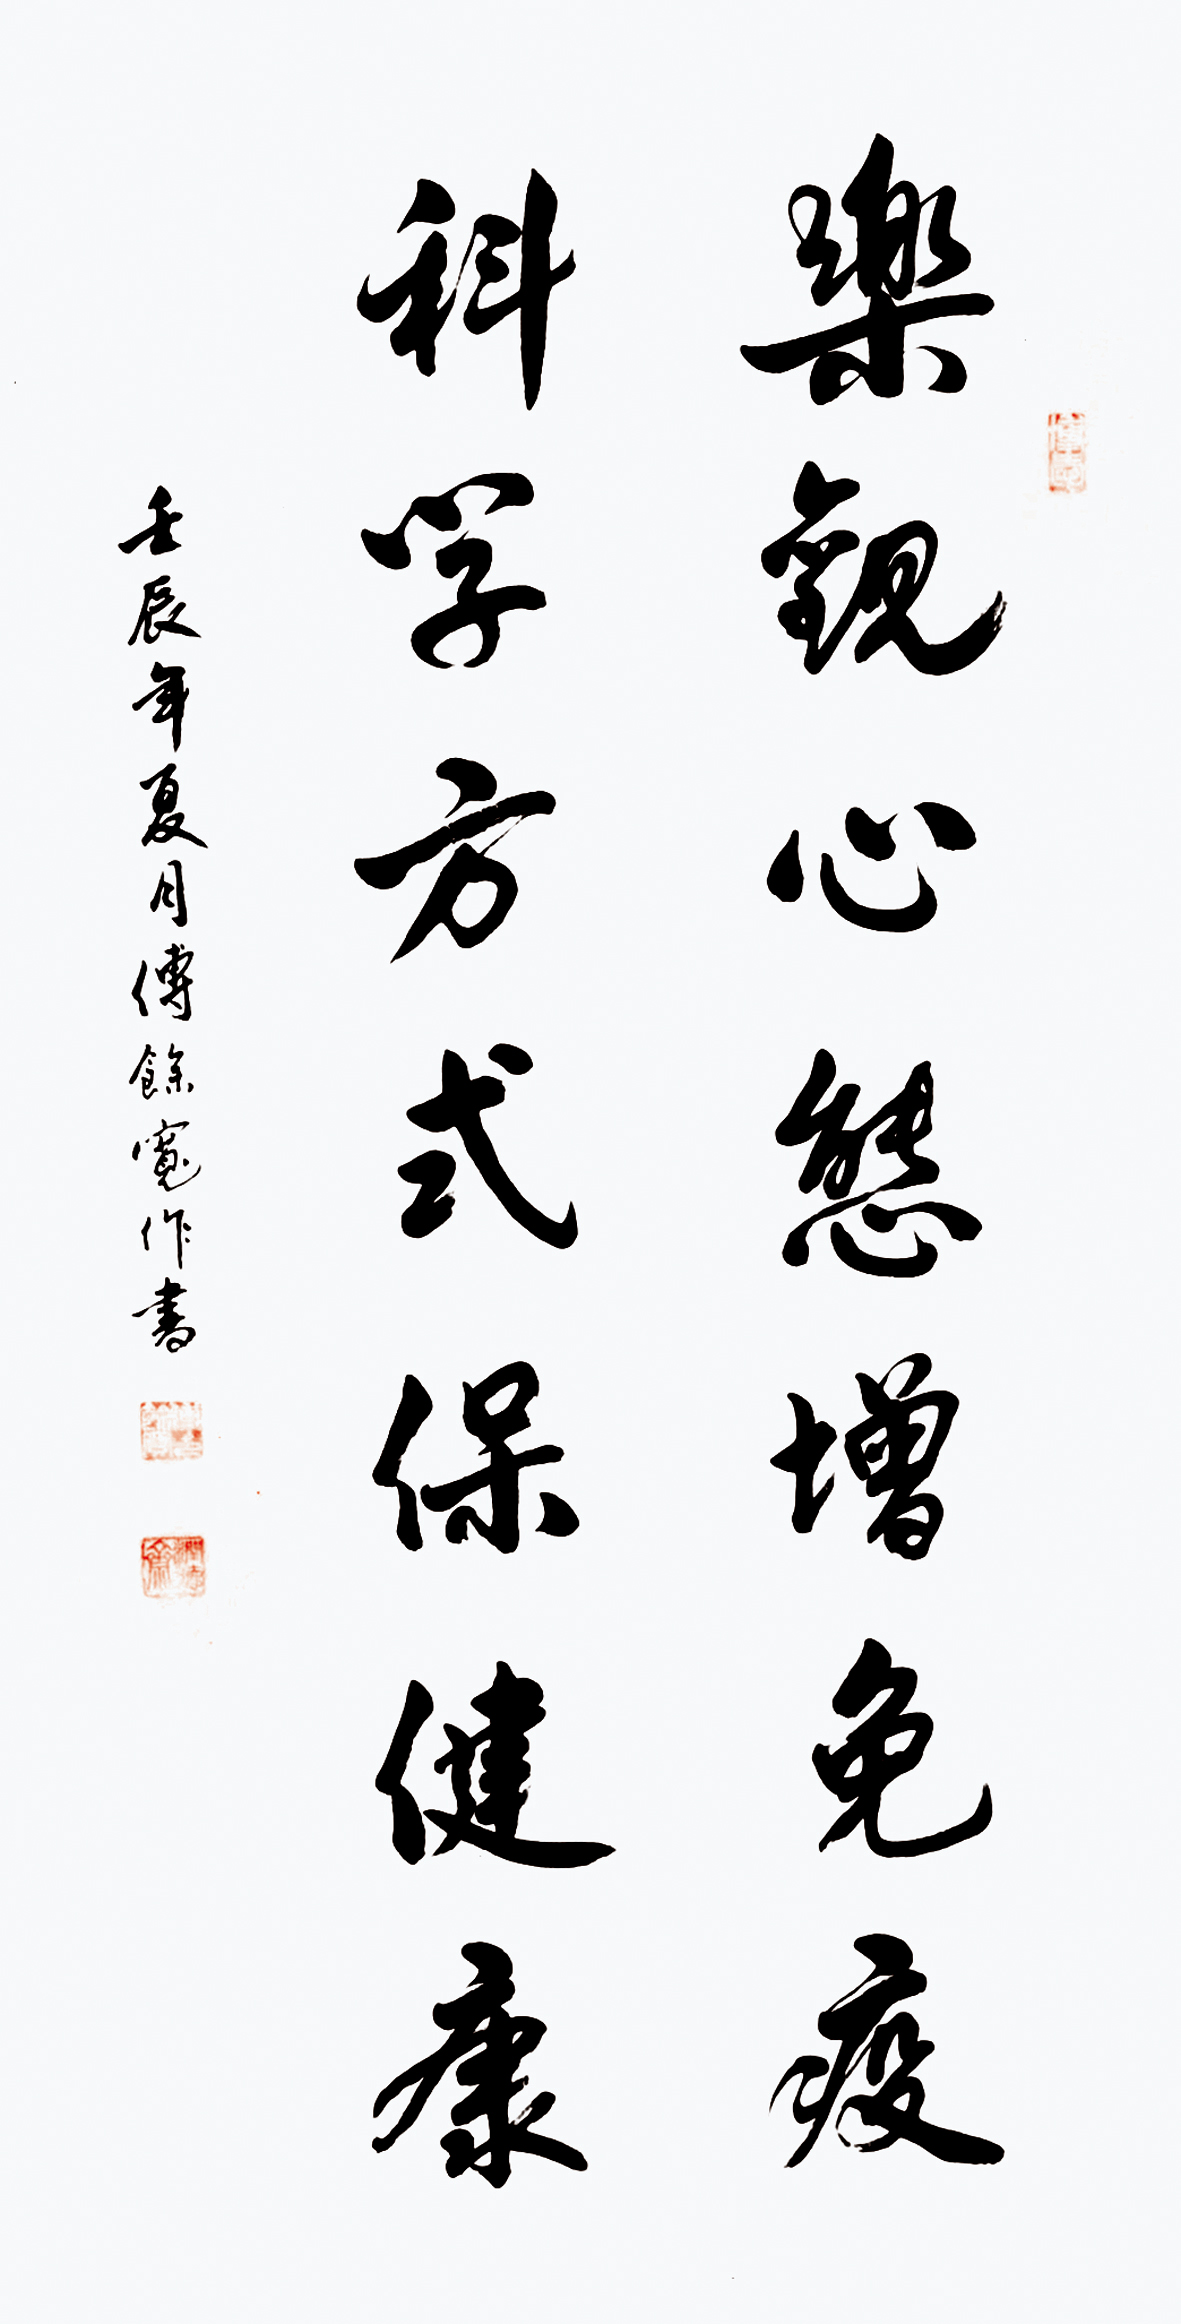 樂觀心態增免疫
科学方式保健康
壬辰年夏月傅餘寬作書